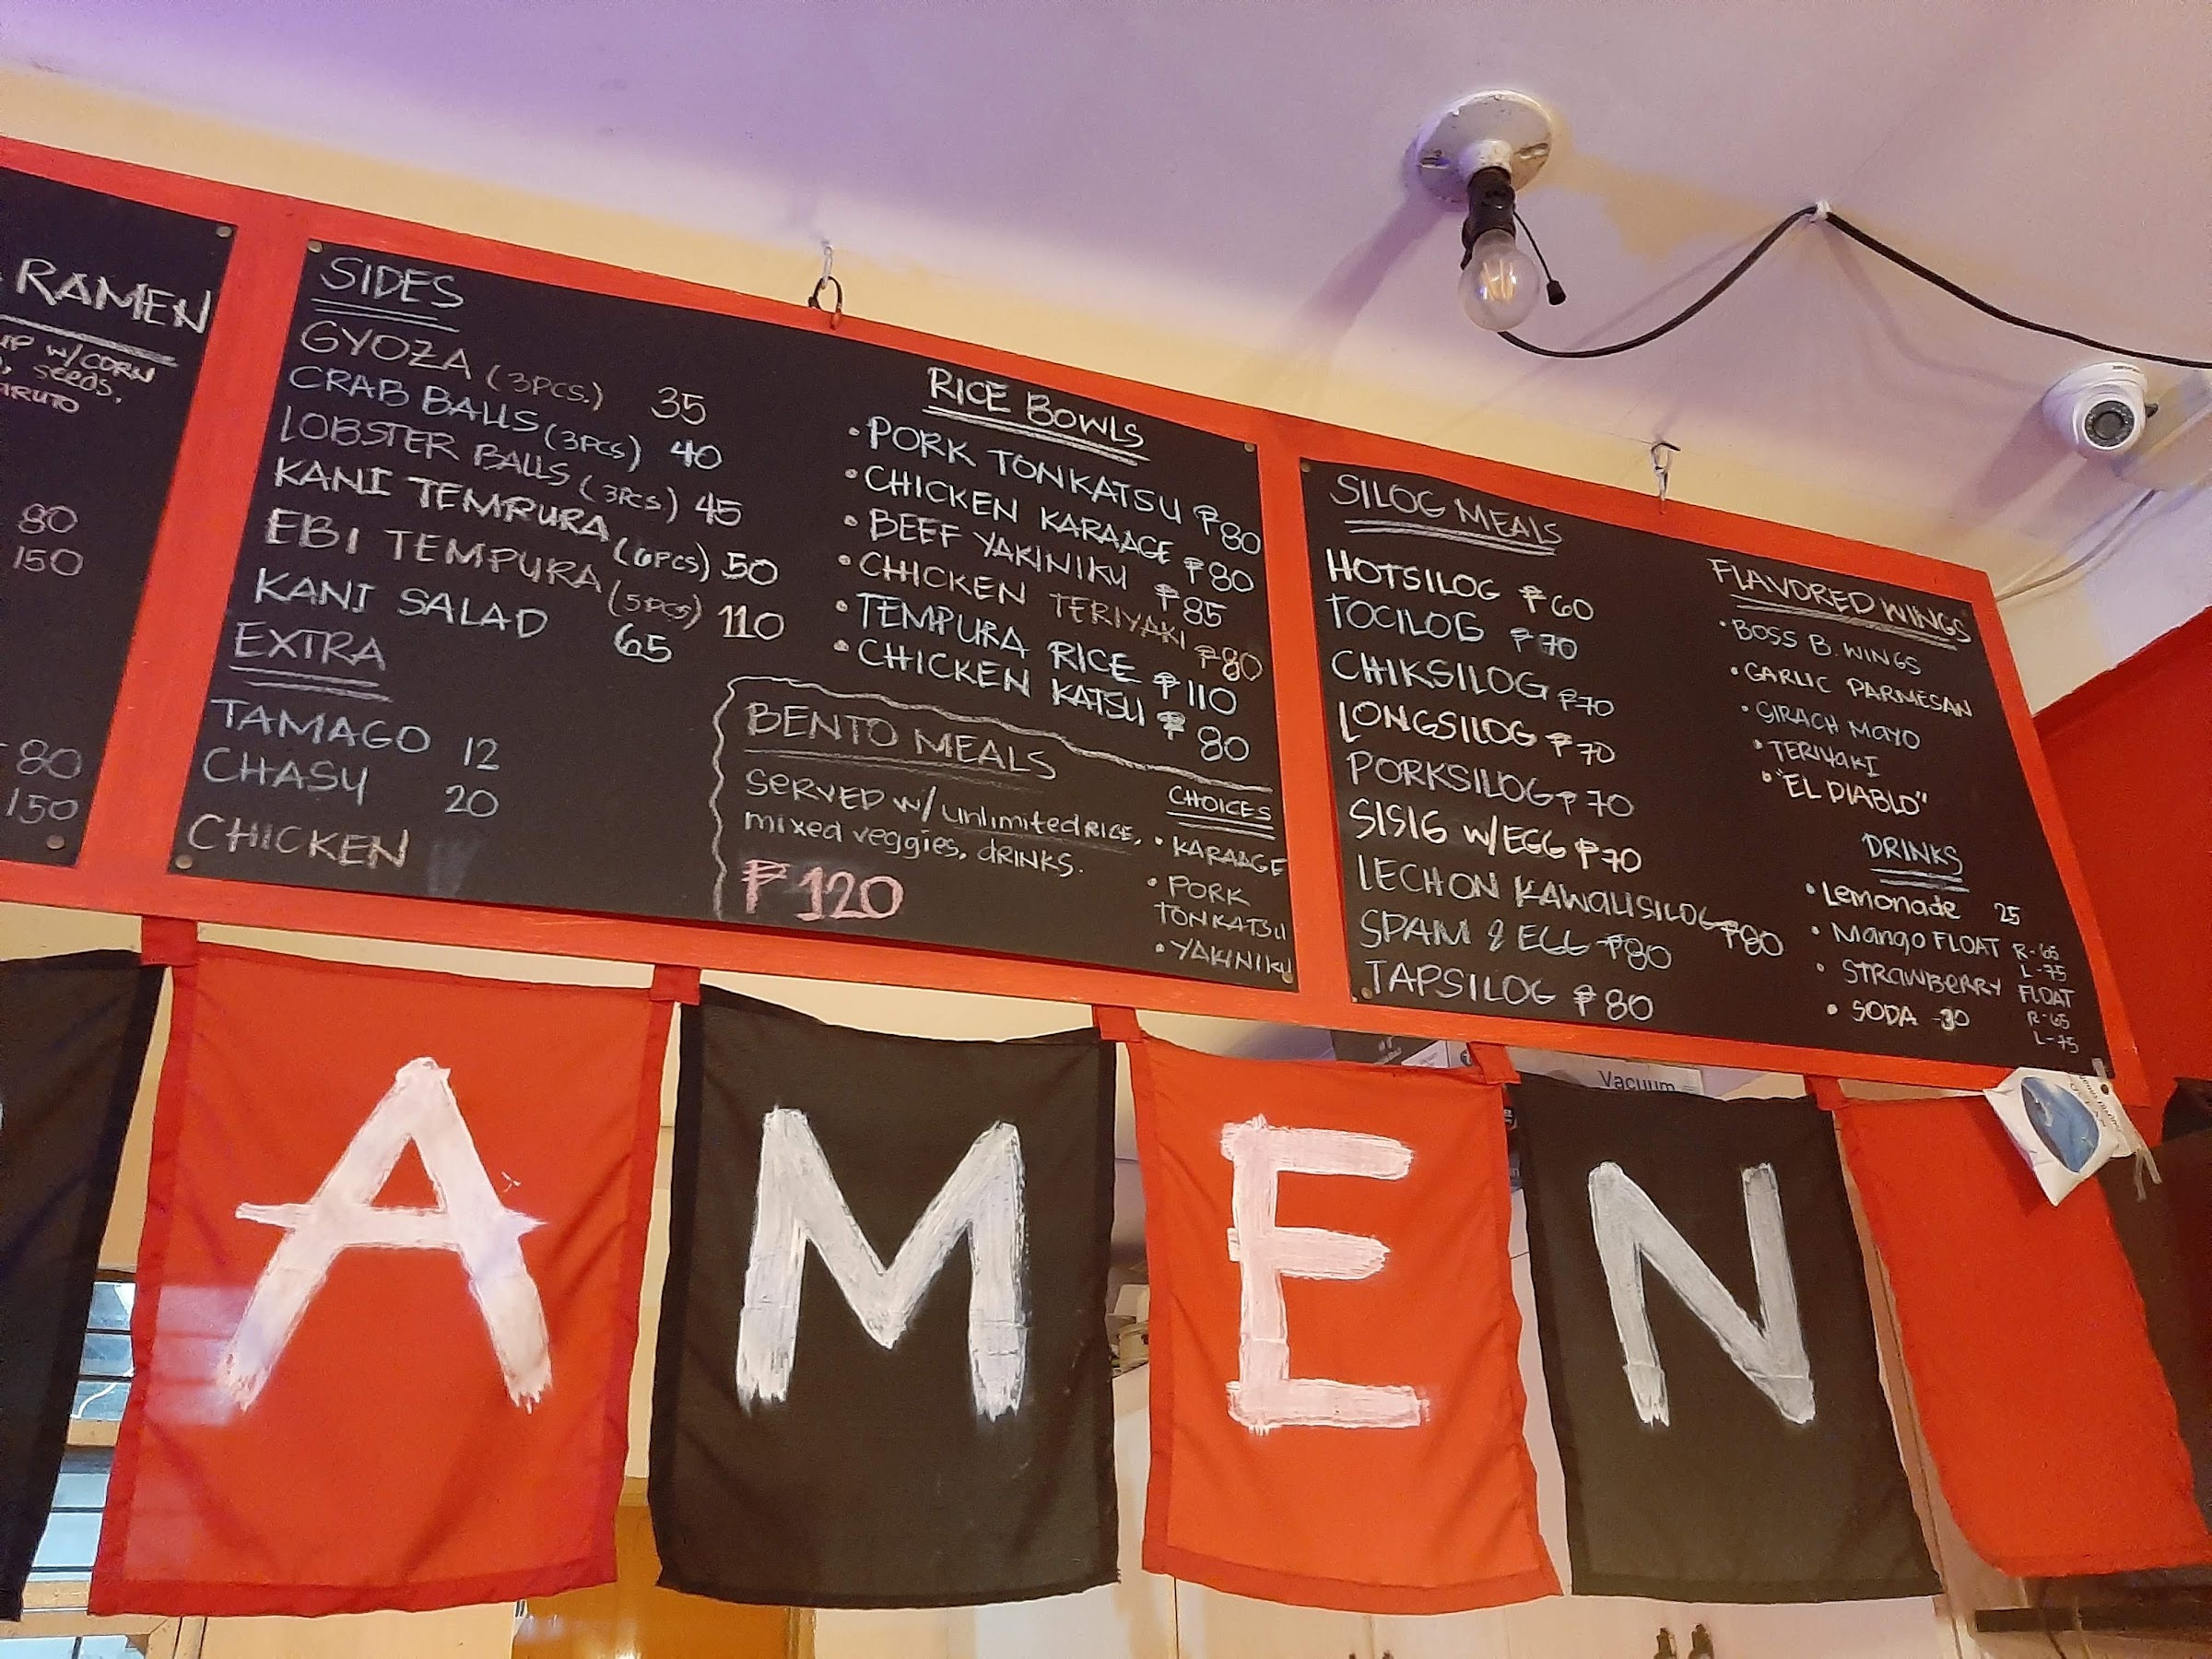 RAMEN
W/CORN
SEEDS,
80
150
80
150
SIDES
GYOZA (3PCS.) 35
CRAB BALLS (3PCS) 40
LOBSTER BALLS (3PCS) 45
KANI TEMPURA (6PCS) 50
EBI TEMPURA (5PCS) 110
KANI SALAD 65
EXTRA
TAMAGO 12
CHASU 20
CHICKEN
RICE BOWLS
• PORK TONKATSU ₱80
• CHICKEN KARAAGE ₱80
• BEEF YAKINIKU ₱85
• CHICKEN TERIYAKI ₱80
• TEMPURA RICE ₱110
• CHICKEN KATSU ₱80
BENTO MEALS
SERVED W/ UNLIMITED RICE,
mixed veggies, DRINKS.
₱120
CHOICES
• KARAAGE
• PORK
TONKATSU
• YAKINIKU
SILOG MEALS
HOTSILOG ₱60
TOCILOG ₱70
CHIKSILOG ₱70
LONGSILOG ₱70
PORKSILOG ₱70
SISIG W/EGG ₱70
LECHON KAWALISILOG ₱80
SPAM & EGG ₱80
TAPSILOG ₱80
FLAVORED WINGS
• BOSS B. WINGS
• GARLIC PARMESAN
• SIRACH MAYO
• TERIYAKI
• "EL DIABLO"
DRINKS
• Lemonade 25
• Mango FLOAT R-65
L-75
• STRAWBERRY FLOAT
R-65
L-75
• SODA -30
Vacuum
A M E N